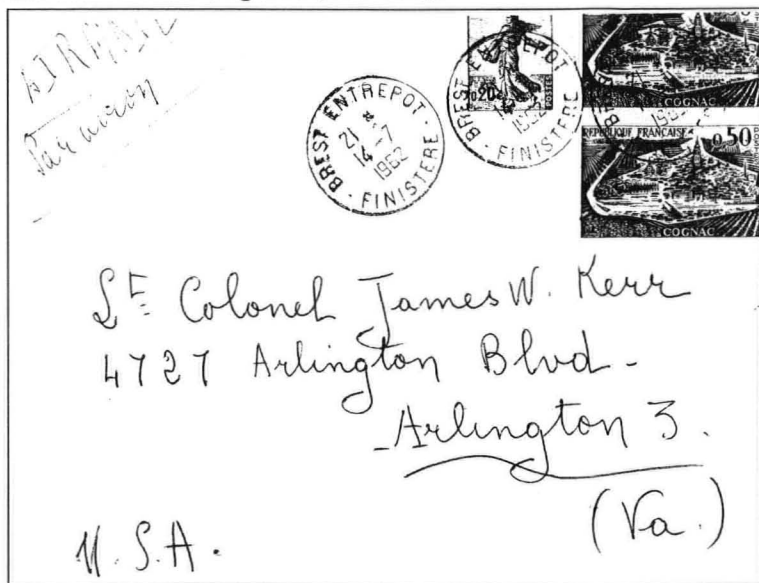 AIRMAIL
Par avion
BREST ENTREPOT
21 *
14-7
1962
FINISTERE
0,20
POSTES
BREST ENTREPOT
1962
FINISTERE
COGNAC
REPUBLIQUE FRANÇAISE
0,50
COGNAC
Lt Colonel James W. Kerr
4727 Arlington Blvd -
- Arlington 3.
(Va.)
U.S.A.